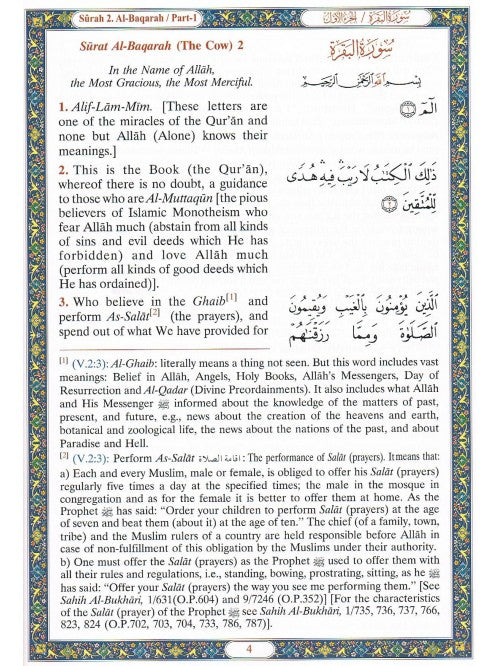 Sûrah 2. Al-Baqarah / Part-1
سورة البقرة ٢ / الجزء الأول
Sûrat Al-Baqarah (The Cow) 2
سُورَةُ البَقَرَةِ
In the Name of Allâh,
the Most Gracious, the Most Merciful.
بِسْمِ اللَّهِ الرَّحْمَٰنِ الرَّحِيمِ
1. Alif-Lâm-Mîm. [These letters are
one of the miracles of the Qur'ân and
none but Allâh (Alone) knows their
meanings.]
الٓمٓ ١
2. This is the Book (the Qur'ân),
whereof there is no doubt, a guidance
to those who are Al-Muttaqûn [the pious
believers of Islamic Monotheism who
fear Allâh much (abstain from all kinds
of sins and evil deeds which He has
forbidden) and love Allâh much
(perform all kinds of good deeds which
He has ordained)].
ذَٰلِكَ الْكِتَابُ لَا رَيْبَ ۛ فِيهِ ۛ هُدًى
لِّلْمُتَّقِينَ ٢
3. Who believe in the Ghaib[1] and
perform As-Salât[2] (the prayers), and
spend out of what We have provided for
الَّذِينَ يُؤْمِنُونَ بِالْغَيْبِ وَيُقِيمُونَ
الصَّلَوٰةَ وَمِمَّا رَزَقْنَاهُمْ
[1] (V.2:3): Al-Ghaib: literally means a thing not seen. But this word includes vast
meanings: Belief in Allâh, Angels, Holy Books, Allâh's Messengers, Day of
Resurrection and Al-Qadar (Divine Preordainments). It also includes what Allâh
and His Messenger ﷺ informed about the knowledge of the matters of past,
present, and future, e.g., news about the creation of the heavens and earth,
botanical and zoological life, the news about the nations of the past, and about
Paradise and Hell.
[2] (V.2:3): Perform As-Salât اقامة الصلاة : The performance of Salât (prayers). It means that:
a) Each and every Muslim, male or female, is obliged to offer his Salât (prayers)
regularly five times a day at the specified times; the male in the mosque in
congregation and as for the female it is better to offer them at home. As the
Prophet ﷺ has said: "Order your children to perform Salât (prayers) at the age
of seven and beat them (about it) at the age of ten." The chief (of a family, town,
tribe) and the Muslim rulers of a country are held responsible before Allâh in
case of non-fulfillment of this obligation by the Muslims under their authority.
b) One must offer the Salât (prayers) as the Prophet ﷺ used to offer them with
all their rules and regulations, i.e., standing, bowing, prostrating, sitting, as he ﷺ
has said: "Offer your Salât (prayers) the way you see me performing them." [See
Sahih Al-Bukhâri, 1/631(O.P.604) and 9/7246 (O.P.352)] [For the characteristics
of the Salât (prayer) of the Prophet ﷺ see Sahih Al-Bukhâri, 1/735, 736, 737, 766,
823, 824 (O.P.702, 703, 704, 733, 786, 787)].
4